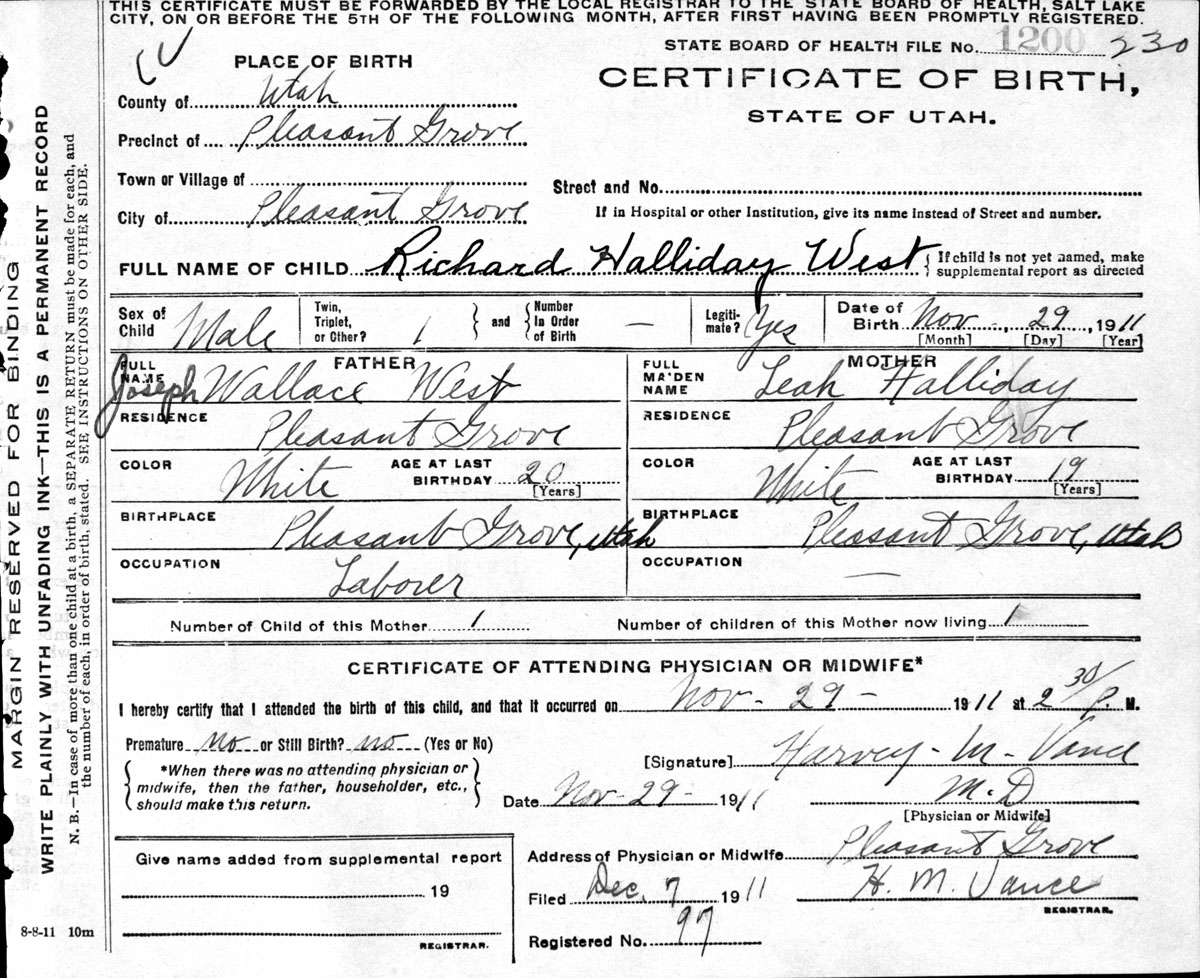 THIS CERTIFICATE MUST BE FORWARDED BY THE LOCAL REGISTRAR TO THE STATE BOARD OF HEALTH, SALT LAKE
CITY, ON OR BEFORE THE 5TH OF THE FOLLOWING MONTH, AFTER FIRST HAVING BEEN PROMPTLY REGISTERED.
STATE BOARD OF HEALTH FILE No. 1200 230
PLACE OF BIRTH
CERTIFICATE OF BIRTH,
STATE OF UTAH.
County of Utah
Precinct of Pleasant Grove
Town or Village of
Street and No.
City of Pleasant Grove
If in Hospital or other Institution, give its name instead of Street and number.
FULL NAME OF CHILD Richard Halliday West { If child is not yet named, make
supplemental report as directed
Sex of Child Male Twin, Triplet, or Other? 1 } and { Number In Order of Birth — Legiti- mate? Yes Date of Birth Nov -, 29, 1911
[Month] [Day] [Year]
FATHER MOTHER
FULL NAME Joseph Wallace West FULL MAIDEN NAME Leah Halliday
RESIDENCE Pleasant Grove RESIDENCE Pleasant Grove
COLOR White AGE AT LAST BIRTHDAY 20 [Years] COLOR White AGE AT LAST BIRTHDAY 19 [Years]
BIRTHPLACE Pleasant Grove, Utah BIRTHPLACE Pleasant Grove, Utah
OCCUPATION Laborer OCCUPATION —
Number of Child of this Mother 1 Number of children of this Mother now living 1
CERTIFICATE OF ATTENDING PHYSICIAN OR MIDWIFE*
I hereby certify that I attended the birth of this child, and that it occurred on Nov - 29 - 1911 at 2 30/P. M.
Premature no or Still Birth? no (Yes or No)
[Signature] Harvey - M - Vance
*When there was no attending physician or
midwife, then the father, householder, etc.,
should make this return.
Date Nov - 29 - 1911 M.D
[Physician or Midwife]
Give name added from supplemental report
19
REGISTRAR.
Address of Physician or Midwife Pleasant Grove
Filed Dec, 7 1911 H. M. Vance
REGISTRAR.
Registered No. 97
8-8-11 10m
MARGIN RESERVED FOR BINDING
WRITE PLAINLY WITH UNFADING INK—THIS IS A PERMANENT RECORD
N. B.—In case of more than one child at a birth, a SEPARATE RETURN must be made for each, and
the number of each, in order of birth, stated. SEE INSTRUCTIONS ON OTHER SIDE.